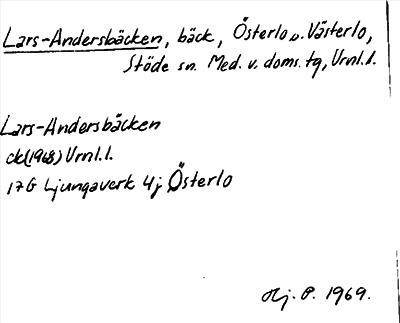 Lars-Andersbäcken, bäck, Österlo o. Västerlo,
Stöde sn. Med. v. doms. tg, Vrnl. l.
Lars-Andersbäcken
ck(1968) Vrnl. l.
17G Ljungaverk 4j Österlo
Hj. P. 1969.